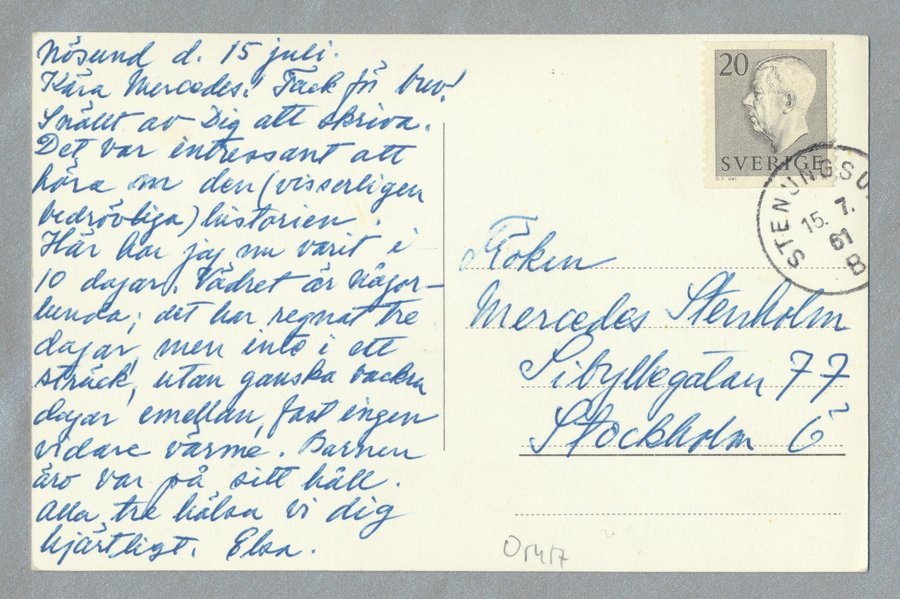 Nösund d. 15 juli.
Kära Mercedes! Tack för brev!
Snällt av Dig att skriva.
Det var intressant att
höra om den (visserligen
bedrövliga) historien.
Här har jag nu varit i
10 dagar. Vädret är någor-
lunda; det har regnat tre
dagar, men inte i ett
sträck, utan ganska vackra
dagar emellan, fast ingen
vidare värme. Barnen
äro var på sitt håll.
Alla tre hälsa vi dig
hjärtligt. Elsa.
20
SVERIGE
STENUNGSU
15. 7.
61
B
Fröken
Mercedes Stenholm
Sibyllegatan 77
Stockholm Ö